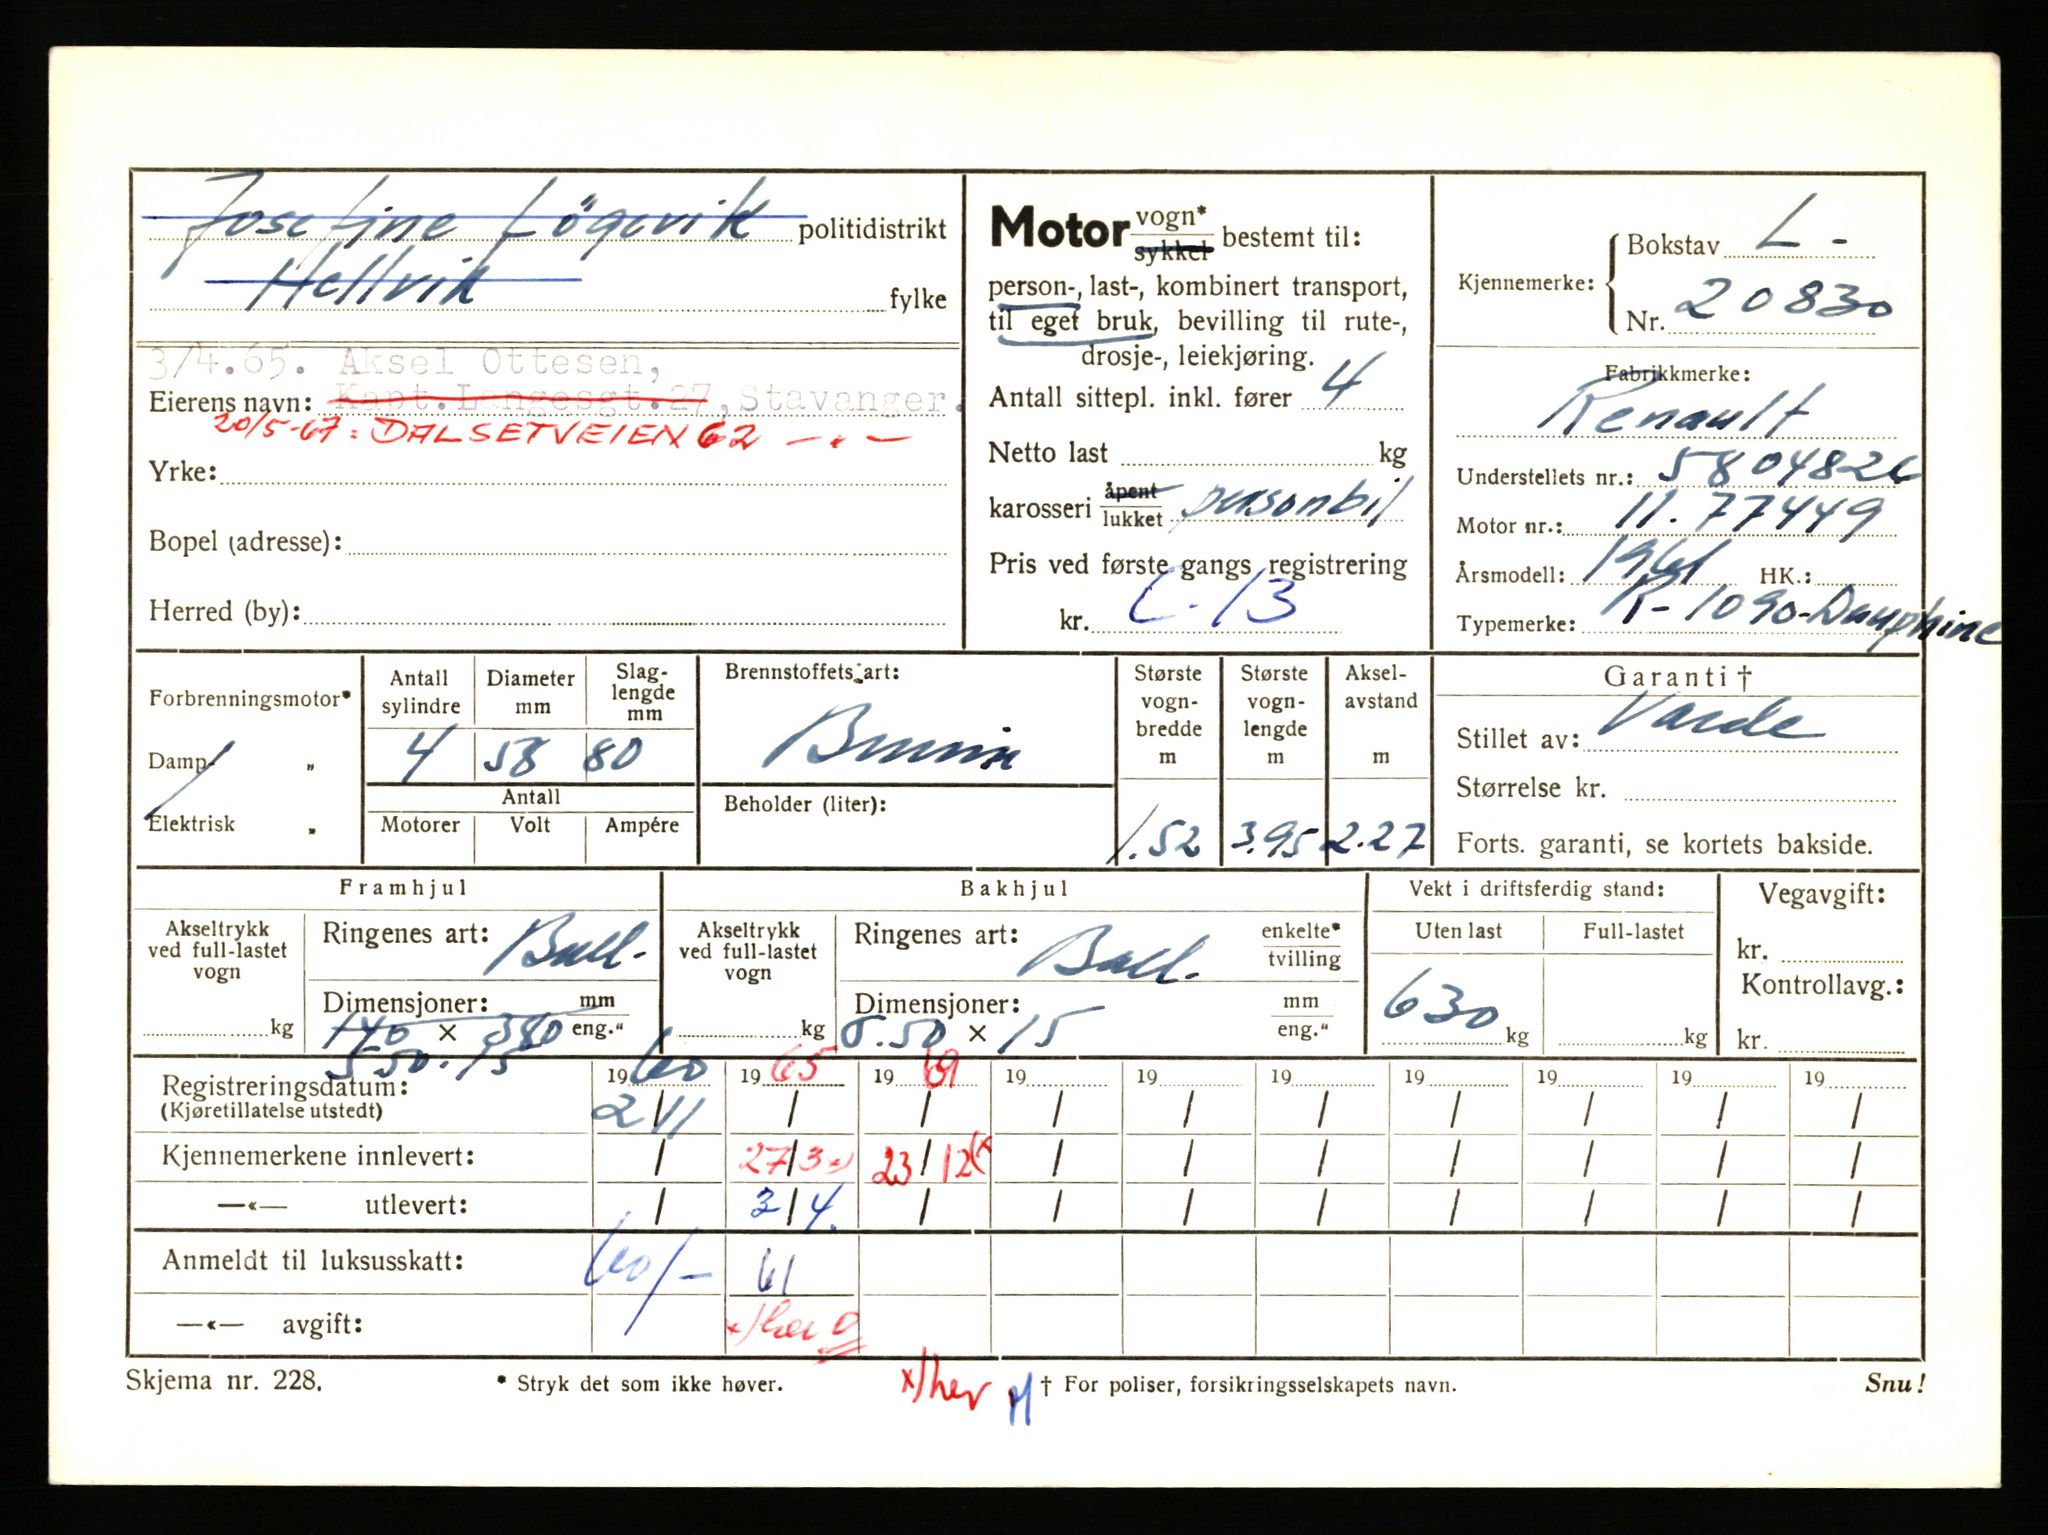 Josefine Lögevik politidistrikt
Hellvik fylke
3/4.65. Aksel Ottesen,
Eierens navn: Kapt.Langesgt.27, Stavanger.
20/5-67: DALSETVEIEN 62 — " —
Yrke:
Bopel (adresse):
Herred (by):
Motor vogn* sykkel bestemt til:
person-, last-, kombinert transport,
til eget bruk, bevilling til rute-,
drosje-, leiekjøring.
Antall sittepl. inkl. fører 4
Netto last kg
karosseri åpent lukket personbil
Pris ved første gangs registrering
kr. C.13
Kjennemerke: Bokstav L -
Nr. 20830
Fabrikkmerke:
Renault
Understellets nr.: 5804826
Motor nr.: 11.77449
Årsmodell: 1961 HK.:
Typemerke: R-1090-Dauphine
Forbrenningsmotor*
Damp- "
Elektrisk "
Antall sylindre Diameter mm Slag-lengde mm
4 58 80
Antall
Motorer Volt Ampére
Brennstoffets art:
Bensin
Beholder (liter):
Største vogn-bredde m Største vogn-lengde m Aksel-avstand m
1.52 3.95 2.27
Garanti †
Stillet av: Varde
Størrelse kr.
Forts. garanti, se kortets bakside.
Framhjul
Akseltrykk ved full-lastet vogn
kg
Ringenes art: Ball.
Dimensjoner: mm eng."
140 × 380
550.15
Bakhjul
Akseltrykk ved full-lastet vogn
kg
Ringenes art: Ball. enkelte* tvilling
Dimensjoner: mm eng."
5.50 × 15
Vekt i driftsferdig stand:
Uten last Full-lastet
630 kg kg
Vegavgift:
kr.
Kontrollavg.:
kr.
Registreringsdatum: 1960 1965 1969 19 19 19 19 19 19 19
(Kjøretillatelse utstedt) 2/11 / / / / / / / / /
Kjennemerkene innlevert: / 27/3 x) 23/12 (x / / / / / / /
—«— utlevert: / 3/4. / / / / / / / /
Anmeldt til luksusskatt: 60/- 61
—«— avgift: x) her 0
Skjema nr. 228. * Stryk det som ikke høver. x) her † For poliser, forsikringsselskapets navn. Snu!